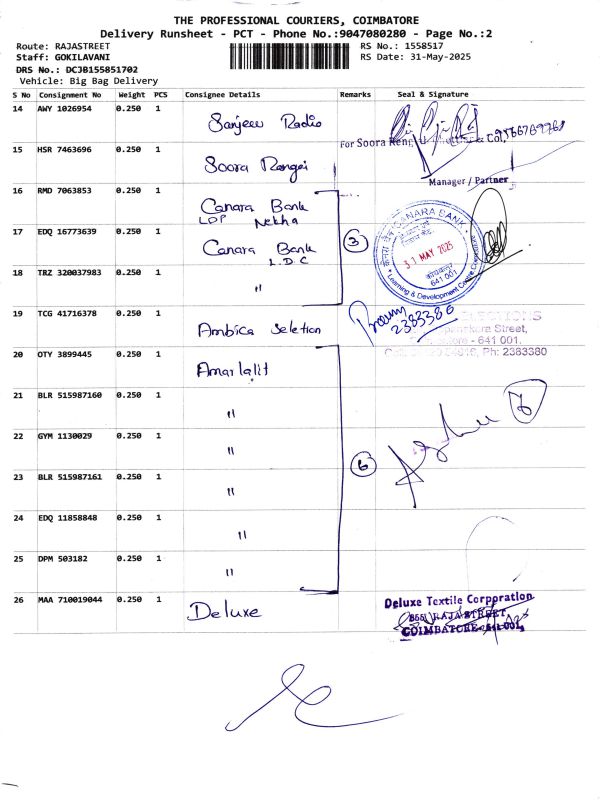 THE PROFESSIONAL COURIERS, COIMBATORE
Delivery Runsheet - PCT - Phone No.:9047080280 - Page No.:2
Route: RAJASTREET
RS No.: 1558517
Staff: GOKILAVANI
RS Date: 31-May-2025
DRS No.: DCJB155851702
Vehicle: Big Bag Delivery
S No Consignment No Weight PCS Consignee Details Remarks Seal & Signature
14 AWY 1026954 0.250 1 Sanjeev Radio
For Soora
Col,
15 HSR 7463696 0.250 1 Soora Rengai
Manager / Partner
16 RMD 7063853 0.250 1 Canara Bank
LDP Nekha
17 EDQ 16773639 0.250 1 Canara Bank
L.D.C
3
CANARA BANK
31 MAY 2025
641 001
Learning & Development Centre
18 TRZ 320037983 0.250 1 "
19 TCG 41716378 0.250 1 Ambica Seletion
2383380
Street,
- 641 001.
Ph: 2383380
20 OTY 3899445 0.250 1 Amarlalit
21 BLR 515987160 0.250 1 "
22 GYM 1130029 0.250 1 "
6
23 BLR 515987161 0.250 1 "
24 EDQ 11858848 0.250 1 "
25 DPM 503182 0.250 1 "
26 MAA 710019044 0.250 1 Deluxe
Deluxe Textile Corporation
RAJA STREET,
COIMBATORE-641 001,